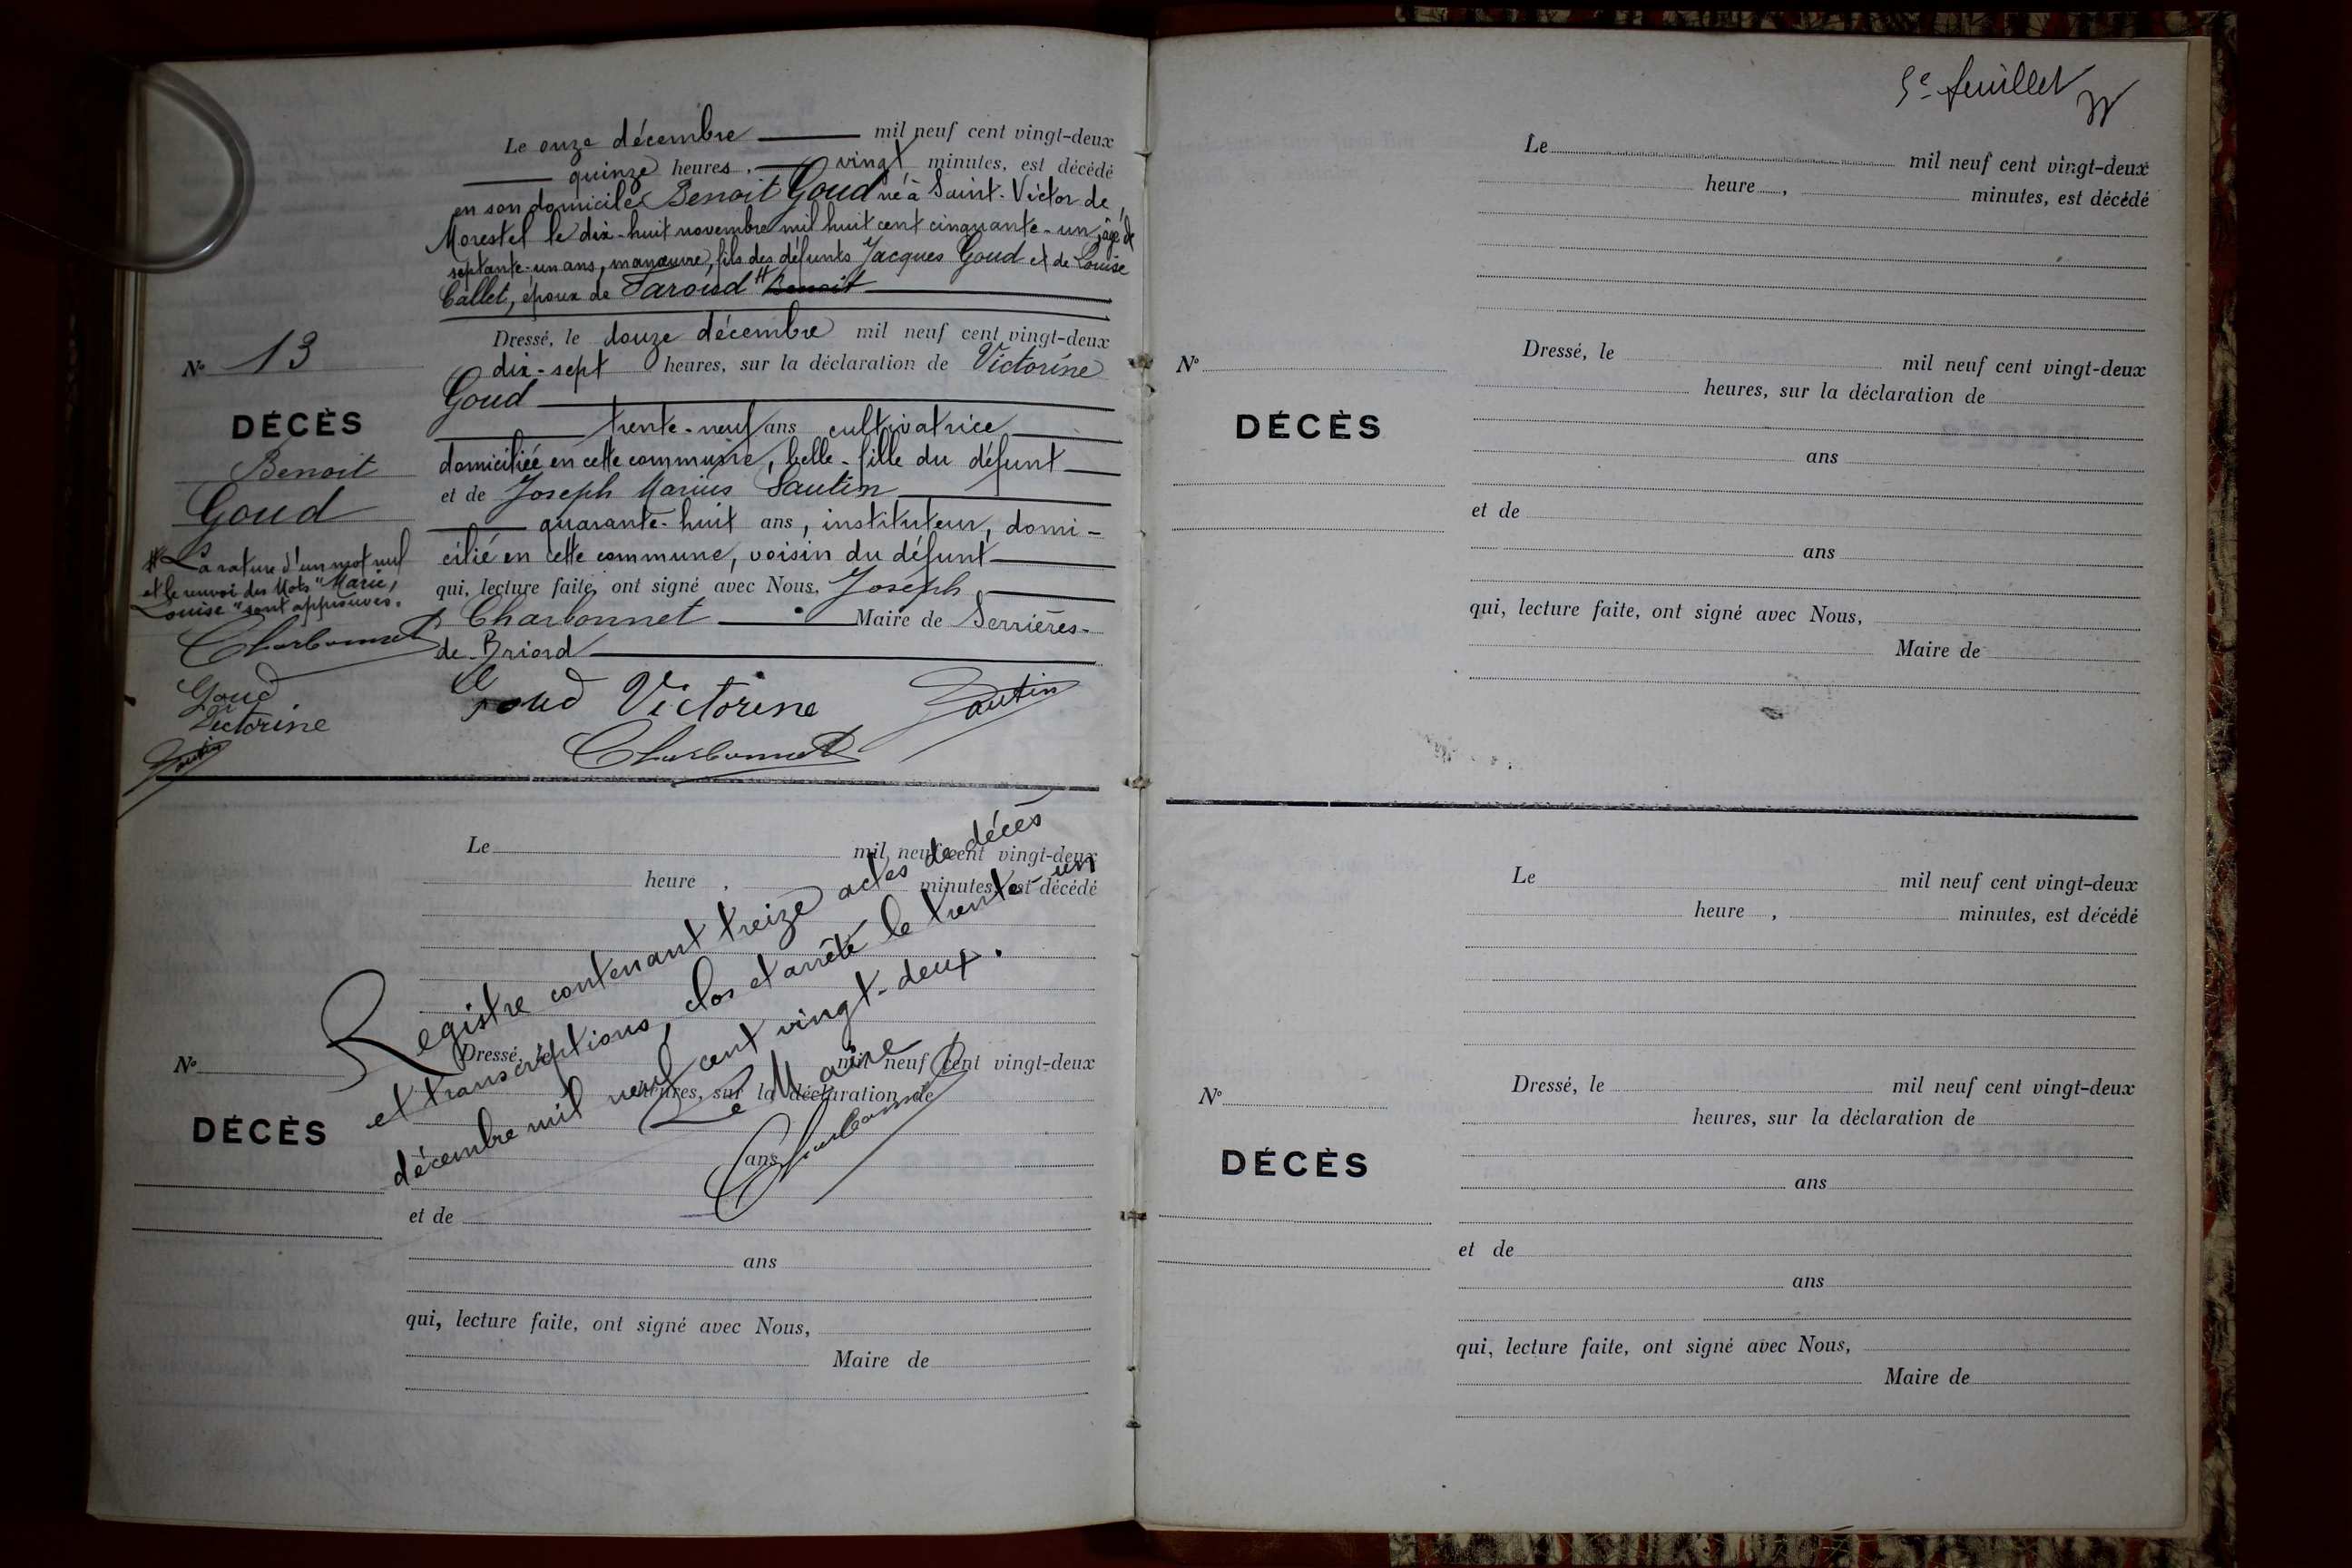 Le onze décembre mil neuf cent vingt-deux
quinze heures, vingt minutes, est décédé
en son domicile Benoit Goud né à Saint-Victor de
Morestel le dix-huit novembre mil huit cent cinquante-un, âgé de
septante-un ans, manœuvre, fils des défunts Jacques Goud et de Louise
Callet, époux de Faroud # Benoit
Dressé, le douze décembre mil neuf cent vingt-deux
dix-sept heures, sur la déclaration de Victorine
Goud
trente-neuf ans cultivatrice
domiciliée en cette commune, belle-fille du défunt
et de Joseph Marius Sautin
quarante-huit ans, instituteur, domi-
cilié en cette commune, voisin du défunt
qui, lecture faite, ont signé avec Nous, Joseph
Charbonnet Maire de Serrières-
de-Briord
Goud Victorine Sautin
Charbonnet
No 13
DÉCÈS
Benoit
Goud
# La rature d'un mot nul
et le renvoi des Mots "Marie,
Louise" sont approuvés.
Charbonnet
Goud
Victorine
Sautin
Le mil neuf cent vingt-deux
heure , minutes, est décédé
Dressé, le mil neuf cent vingt-deux
heures, sur la déclaration de
ans
et de
ans
qui, lecture faite, ont signé avec Nous,
Maire de
No
DÉCÈS
Registre contenant treize actes de décès
et transcriptions, clos et arrêté le trente-un
décembre mil neuf cent vingt-deux.
Le Maire
Charbonnet
5e feuillet
Le mil neuf cent vingt-deux
heure , minutes, est décédé
Dressé, le mil neuf cent vingt-deux
heures, sur la déclaration de
ans
et de
ans
qui, lecture faite, ont signé avec Nous,
Maire de
No
DÉCÈS
Le mil neuf cent vingt-deux
heure , minutes, est décédé
Dressé, le mil neuf cent vingt-deux
heures, sur la déclaration de
ans
et de
ans
qui, lecture faite, ont signé avec Nous,
Maire de
No
DÉCÈS